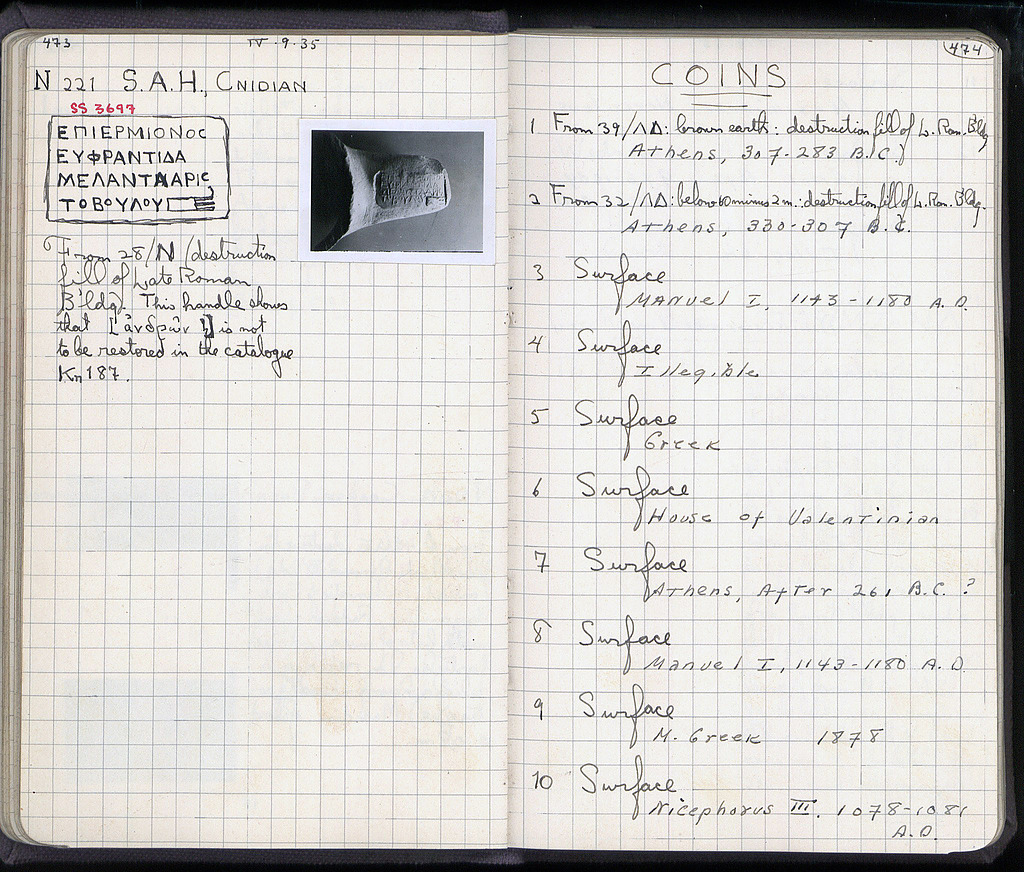 473
IV·9·35
N 221 S.A.H., CNIDIAN
SS 3697
ΕΠΙΕΡΜΙΟΝΟϹ
ΕΥΦΡΑΝΤΙΔΑ
ΜΕΛΑΝΤΑΑΡΙϹ
ΤΟΒΟΥΛΟΥ
From 28/N (destruction
fill of Late Roman
B'ldg). This handle shows
that [ἀνδρῶν] is not
to be restored in the catalogue
Kn 187.
474
COINS
1 From 39/ΛΔ: brown earth: destruction fill of L. Rom. Bldg
Athens, 307-283 B.C.
2 From 32/ΛΔ: below 60 minus 2 m.: destruction fill of L. Rom. Bldg.
Athens, 330-307 B.C.
3 Surface
Manuel I, 1143-1180 A.D.
4 Surface
Illegible
5 Surface
Greek
6 Surface
House of Valentinian
7 Surface
Athens, After 261 B.C. ?
8 Surface
Manuel I, 1143-1180 A.D.
9 Surface
M. Greek 1878
10 Surface
Nicephorus III. 1078-1081
A.D.